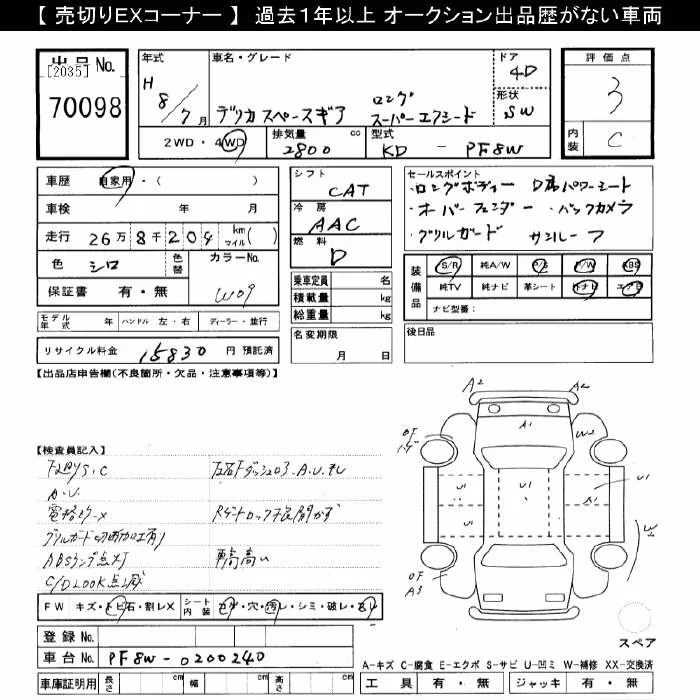 【 売切りEXコーナー 】 過去1年以上 オークション出品歴がない車両
出品 No.
[2035]
70098
年式
H 8/7 月
車名・グレード
デリカ スペースギア ロング スーパーエクシード
ドア
4D
形状
SW
2WD・4WD
排気量 2800 cc
型式 KD - PF8W
評価点
3
内装 C
車歴 自家用・( )
車検 年 月
走行 26万 8千 204 km マイル ( )
色 シロ 色替
カラーNo. W09
保証書 有・無
シフト CAT
冷房 AAC
燃料 D
乗車定員 名
積載量 kg
総重量 kg
セールスポイント
・ロングボディー D席パワーシート
・オーバーフェンダー ・バックカメラ
・グリルガード サンルーフ
装備品
S/R 純A/W P/S P/W ABS
純TV 純ナビ 革シート 外ナビ エアB
ナビ型番:
モデル年式 年 ハンドル 左・右 ディーラー・並行
リサイクル料金 15830 円 預託済
名変期限 月 日
後日品
【出品店申告欄(不良箇所・欠品・注意事項等)】
【検査員記入】
下回りS.C
A.U.
グリルガード切断加工有り
ABSランプ点灯
車高高い
FW キズ・トビ石・割レX
シート内装 コゲ・穴・汚レ・シミ・破レ・
A2
A2
A1
W2
OF
U1
U1
U1
U1
A1
W
OF
A3
スペア
登録 No.
車台 No. PF8W-0200240
車庫証明用 長さ cm 幅 cm 高さ cm
A-キズ C-腐食 E-エクボ S-サビ U-凹ミ W-補修 XX-交換済
工具 有・無 ジャッキ 有・無